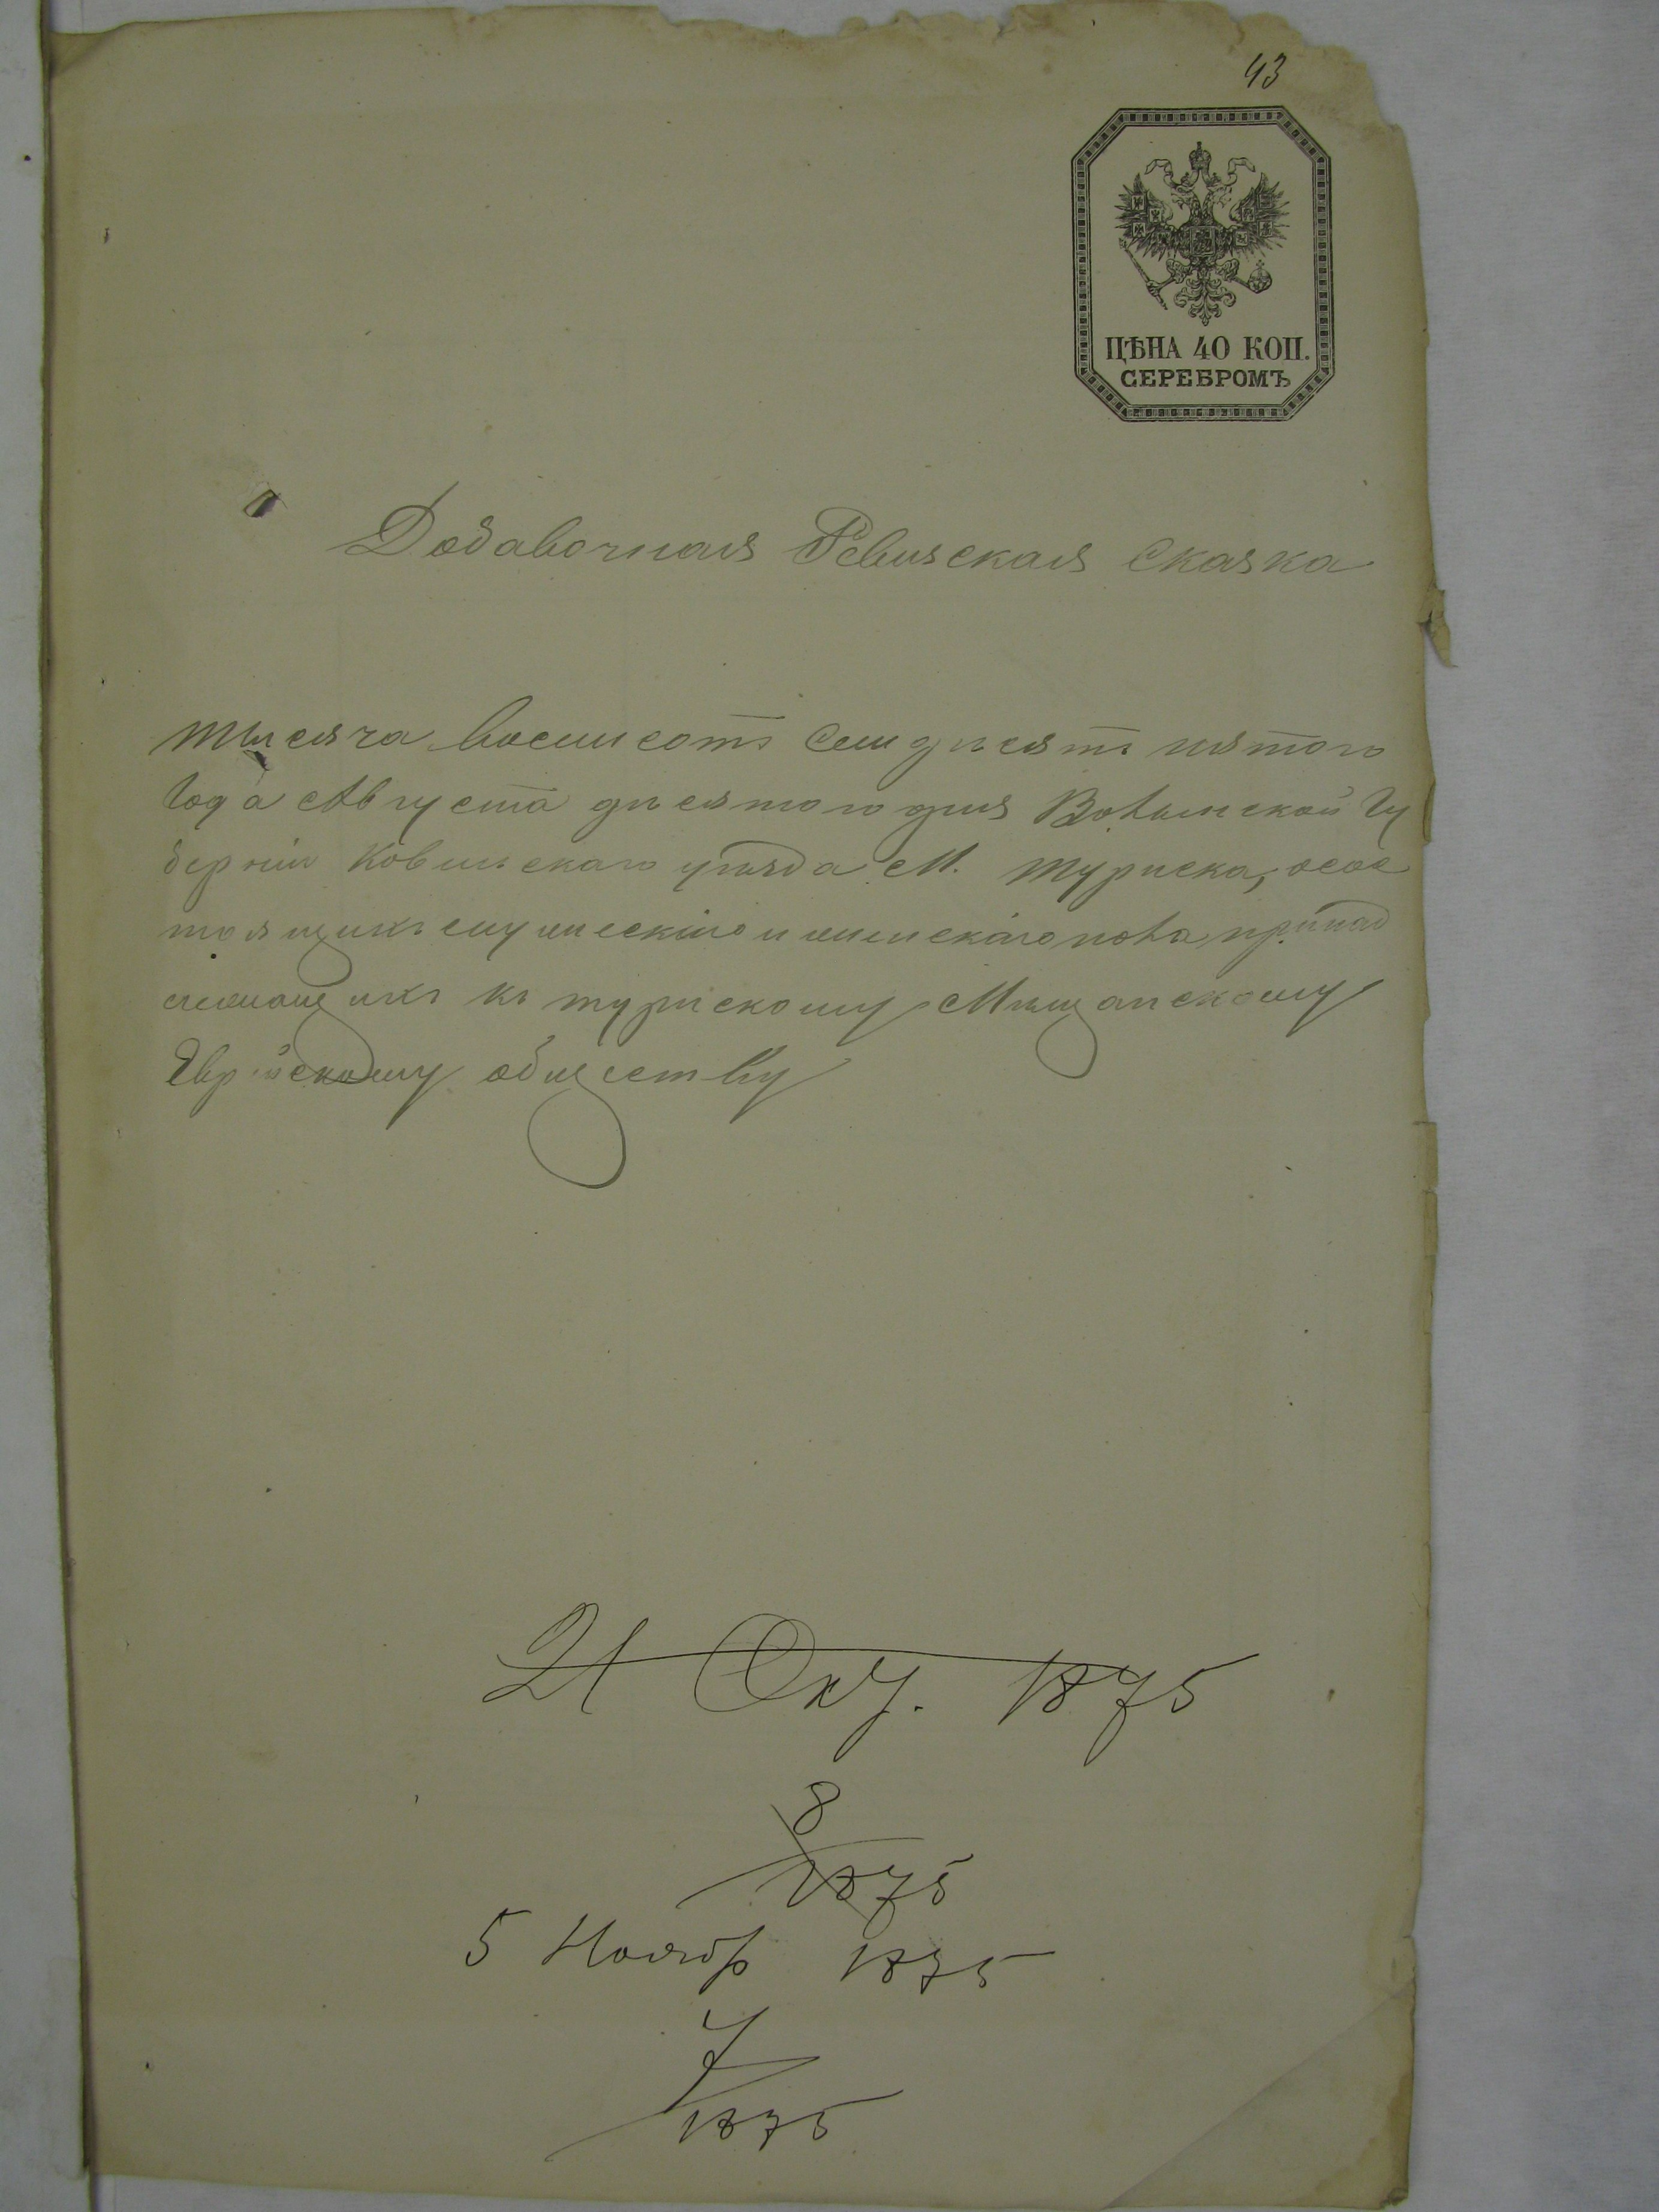 43
ЦѢНА 40 КОП.
СЕРЕБРОМЪ
Добавочная Ревизская Сказка
тысяча восемсотъ семдесятъ пятого
Года Августа десятого дня Волынской Гу
берніи Ковельскаго уѣзда М. Турiска, осос
тоящихъ мужескаго и женскаго пола принад
лежащихъ къ турискому Мѣщанскому
Еврейскому обществу
21 Окт. 1875
8
1875
5 Ноябр 1875
7
1875